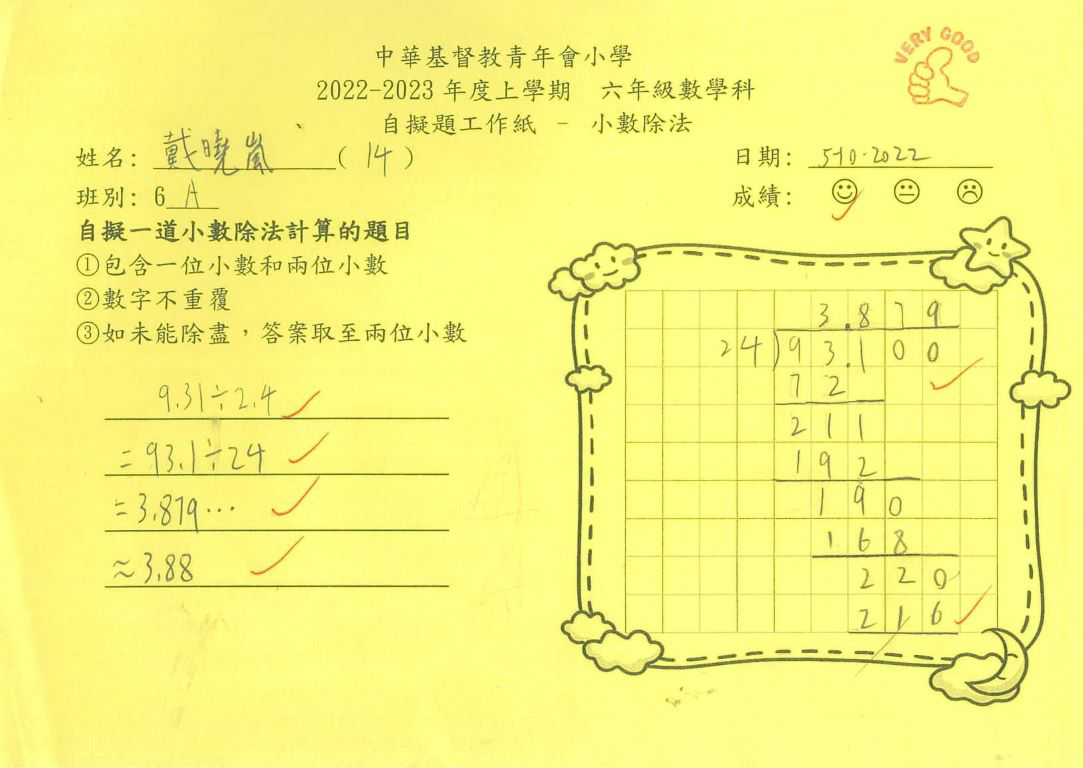 VERY GOOD
中華基督教青年會小學
2022-2023 年度上學期　六年級數學科
自擬題工作紙 - 小數除法
姓名: 戴曉嵐 ( 14 )
日期: 5-10-2022
班別: 6 A
成績:
自擬一道小數除法計算的題目
①包含一位小數和兩位小數
②數字不重覆
③如未能除盡，答案取至兩位小數
9.31÷2.4
=93.1÷24
=3.879...
≈3.88
3.879
24)93.100
72
211
192
190
168
220
216